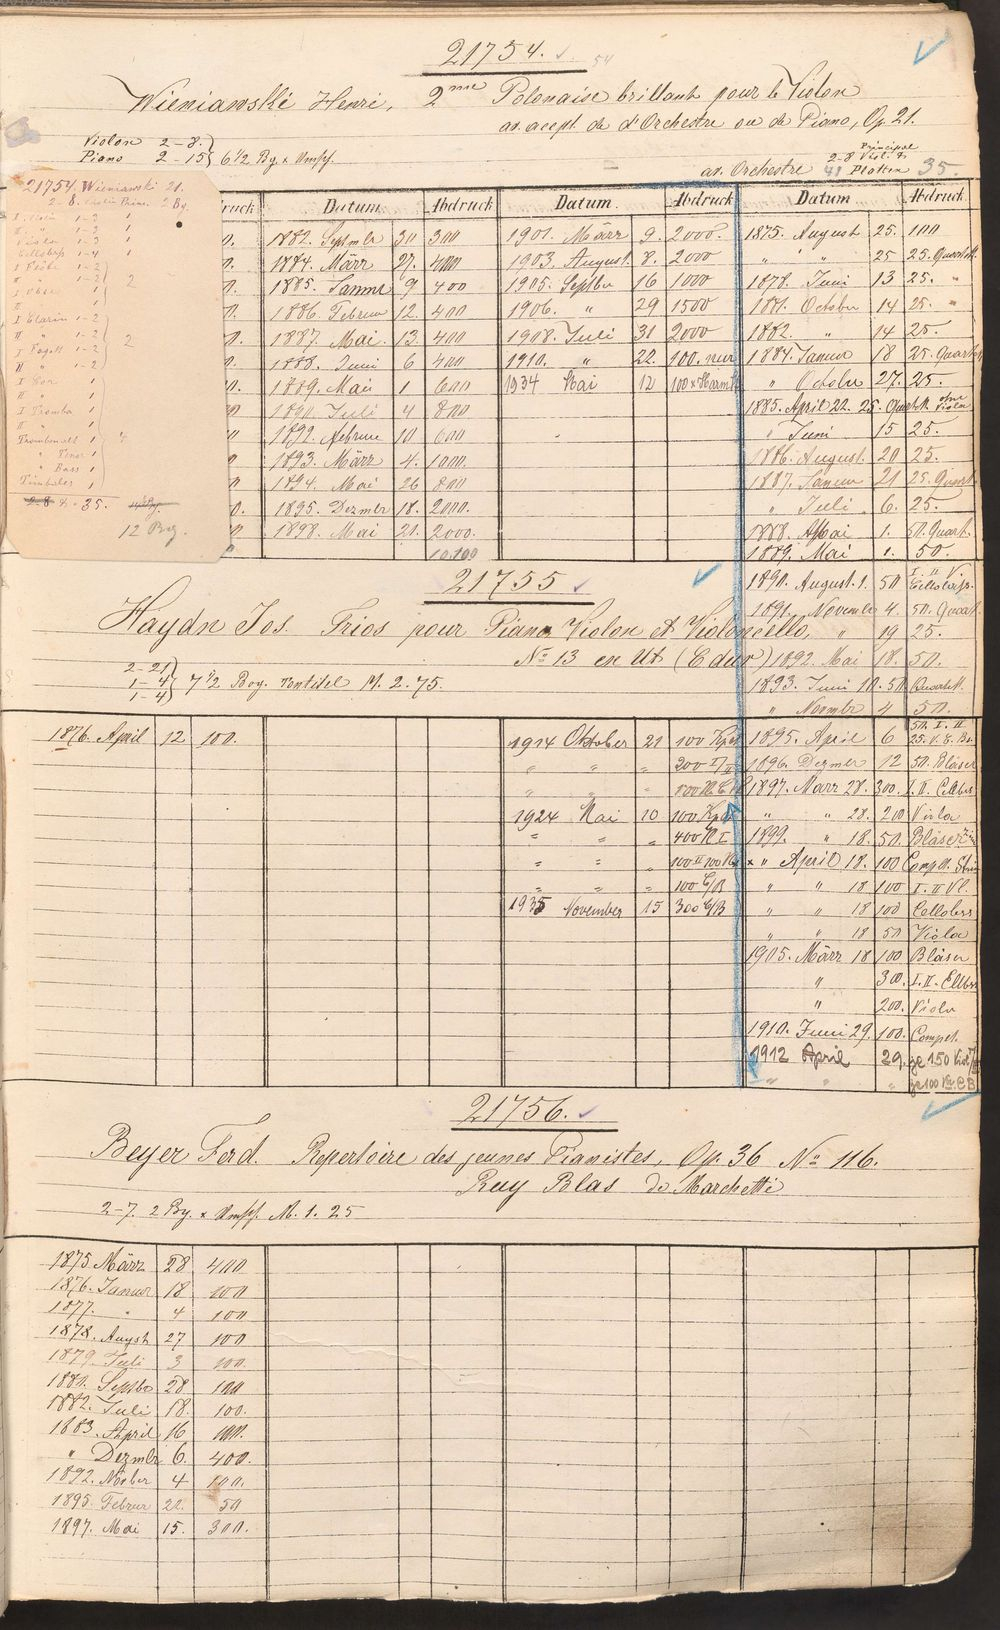 21754.
54
Wieniawski Henri, 2me Polonaise brillant pour le Violon
av. acept. de d'Orchestre ou de Piano, Op. 21.
Violon 2-8.
Piano 2-15 6 1/2 Bg. x Umschl.
av. Orchestre 2-8 Principal Viol. 41 Platten 35.
21754. Wieniawski 21.
2-8. Violin Princ. 2 Bg.
I Violin 1-3 1
II " 1-3 1
Viola 1-3 1
Cello Bss 1-4 1
I Flöte 1-2
II " 1-2
I Oboe 1
II " 1
2
I Clarin 1-2
II " 1-2
I Fagott 1-2
II " 1-2
2
I Cor 1
II " 1
I Tromba 1
II " 1
Tromboni alt 1
" Tenor 1
" Bass 1
Timbales 1
4. 35.
12 Bg.
Abdruck Datum Abdruck Datum Abdruck Datum Abdruck
1882. Septmbr 30 300
1884. März 27. 400
1885. Januar 9 400
1886. Februar 12. 400
1887. Mai 13. 400
1888. Juni 6 400
1889. Mai 1 600
1890. Juli 4 800
1892. Februar 10 600
1893. März 4. 1000.
1894. Mai 26 800
1895. Dezmbr 18. 2000.
1898. Mai 21. 2000.
10.100
1901. März 9. 2000.
1903. August. 8. 2000
1905. Septbr 16 1000
1906. " 29 1500
1908. Juli 31 2000
1910. " 22. 100. nur
1934 Mai 12 100 x
1875. August 25. 100
" " 25 25. Quartett.
1878. Juni 13 25. "
1881. October 14 25. "
1882. " 14 25.
1884. Januar 18 25. Quartett
" October 27. 25.
1885. April 22. 25. Quartett ohne Viola
" Juni 15 25.
1886. August. 20 25.
1887. Januar 21 25. Quart.
" Juli 6. 25.
1888. Mai 1. 50. Quart.
1889. Mai 1. 50.
1890. August. 1. 50 I. II V. Cello Bss.
1891. Novembr 4. 50. Quart.
" 19 25.
1892. Mai 18. 50.
1893. Juni 10. 50 Quartett.
" Novmbr 4 50.
1895. April 6 50. I. II 25. V. C. Bs.
1896. Dezmbr 12 50. Bläser
1897. März 28. 300. I. II. Cellbss
" " 28. 200 Viola
1899. " 18. 50. Bläser
" April 18. 100 Complt.
" " 18 100 I. II Vl.
" " 18 100 Cellobss
" " 18 50 Viola
1905. März 18 100 Bläser
" 300. I. II. Cllbss
" 200. Viola
1910. Juni 29. 100. Complt.
1912 April 29. je 150 Viol I/II
" " " je 100 Vla. C B
21755
Haydn Jos. Trios pour Piano Violon et Violoncello,
No 13 en Ut (C dur)
2-21
1-4
1-4
7 1/2 Bog. Tontitel M. 2.75.
1876. April 12 100.
1914 Oktober 21 100 Kplt
" " " 200 I/II
" " "
1924 Mai 10 100 Kplt
" " " 400 Vl I
" " " 100 II 100 Vla
" " " 100 C/B
1935 November 15 300 C/B
21756.
Beyer Ferd. Repertoire des jeunes Pianistes, Op. 36 No 116.
Ruy Blas de Marchetti
2-7. 2 Bg. x Umschl. M. 1. 25
1875 März 28 400
1876. Januar 18 100
1877. " 4 100
1878. August 27 100
1879. Juli 3 100.
1880. Septbr 28 100
1882. Juli 18. 100.
1883. April 16 100.
" Dezmbr 6. 400.
1892. Novber 4 100.
1895. Februar 22. 50
1897. Mai 15. 300.